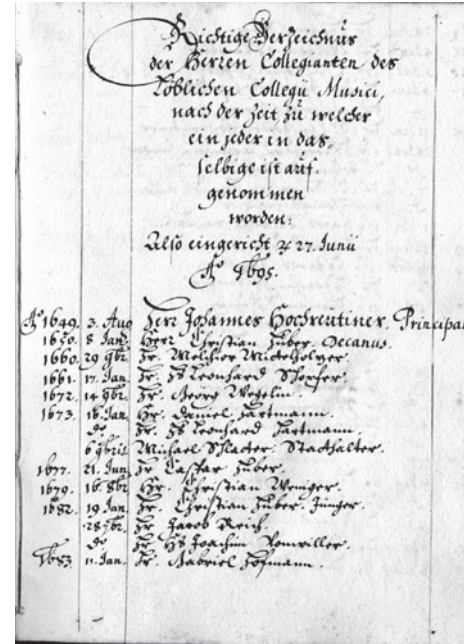 Richtige Verzeichnus
der Herren Collegianten des
Löblichen Collegii Musici,
nach der Zeit, zu welcher
ein jeder in das,
selbige ist auf,
genommen
worden:
Also eingericht 27. Junii
Aō 1695.
Aō 1649. 3. Aug Herr Johannes Hochreutiner. Principal
1650. 8 Jan. Herr Christian Huber. Decanus.
1660. 29 9br. Hr. Melchior Mittelholzer.
1661. 17. Jan. Hr. Hs Leonhard Schopfer.
1672. 14 9br. Hr. Georg Wegelin.
1673. 16. Jan. Hr. Daniel Hartmann.
do Hr. Hs Leonhard Hartmann.
6 9bris. Michael Schlatter. Statthalter.
1677. 21. Jun. Hr Caspar Huber.
1679. 16. 8br. Hr. Christian Weniger.
1682. 19 Jan. Hr. Christian Huber. Jünger.
28 7br. Hr Jacob Reich.
do Hr. Hs Joachim
1683 11. Jan. Hr. Gabriel Hofmann.